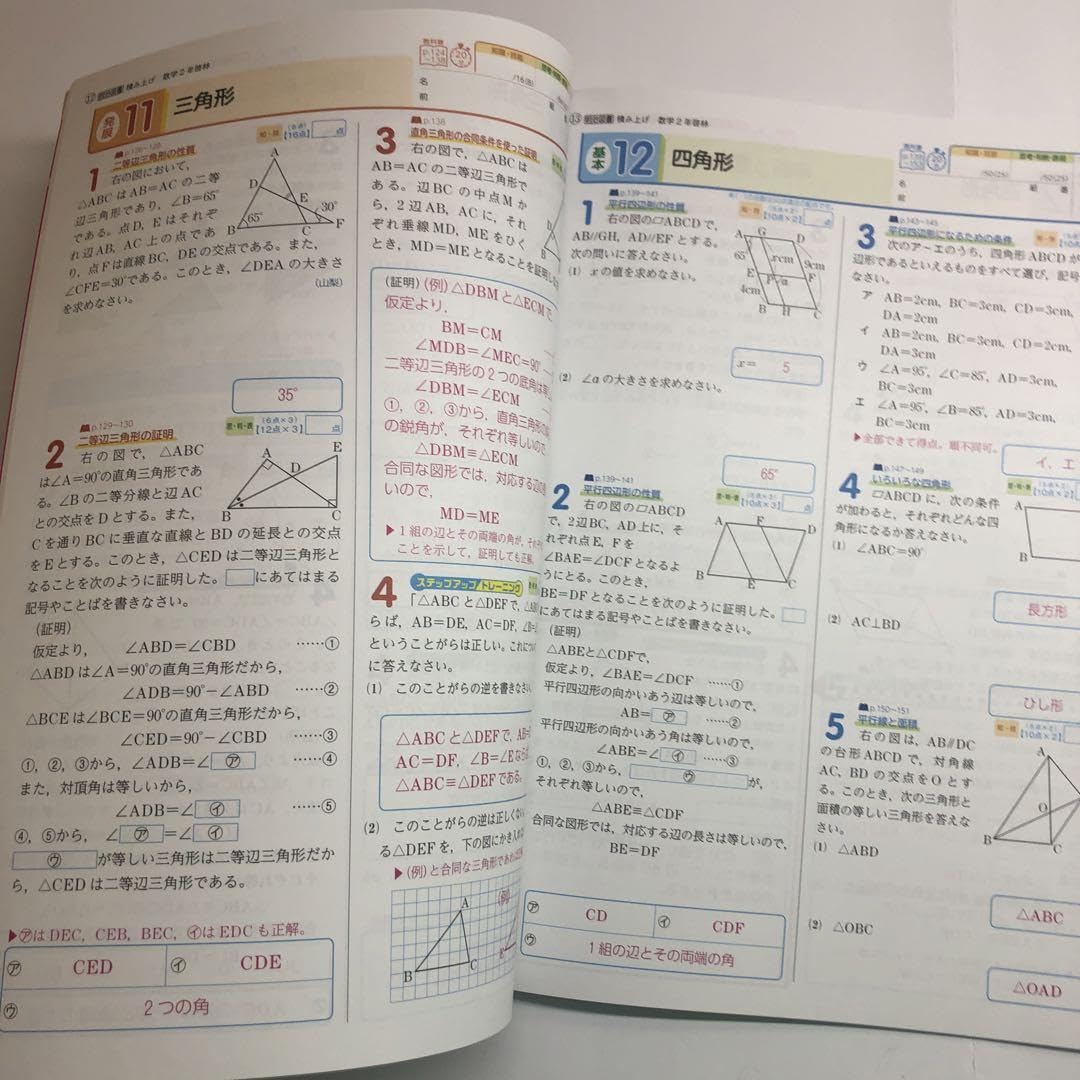 ⑫ 明治図書 積み上げ 数学2年啓林
発展 11 三角形
教科書 p.124~138
20分
知識・技能
/16(8)
組
名
前
p.126~128
二等辺三角形の性質
知・技 (8点) 【16点】 点
1 右の図において,
△ABCはAB=ACの二等
辺三角形であり, ∠B=65°
である。点D, Eはそれぞ
れ辺AB, AC上の点であ
り, 点Fは直線BC, DEの交点である。また,
∠CFE=30°である。このとき, ∠DEAの大きさ
を求めなさい。 (山梨)
A
D
E
65°
30°
B
C
F
35°
p.129~130
二等辺三角形の証明
思・判・表 (6点×3) 【12点×3】 点
2 右の図で, △ABC
は∠A=90°の直角三角形であ
る。∠Bの二等分線と辺AC
との交点をDとする。また,
Cを通りBCに垂直な直線とBDの延長との交点
をEとする。このとき, △CEDは二等辺三角形と
なることを次のように証明した。□にあてはまる
記号やことばを書きなさい。
A
D
E
B
C
(証明)
仮定より, ∠ABD=∠CBD ……①
△ABDは∠A=90°の直角三角形だから,
∠ADB=90°-∠ABD ……②
△BCEは∠BCE=90°の直角三角形だから,
∠CED=90°-∠CBD ……③
①, ②, ③から, ∠ADB=∠㋐ ……④
また, 対頂角は等しいから,
∠ADB=∠㋑ ……⑤
④, ⑤から, ∠㋐=∠㋑
㋒が等しい三角形は二等辺三角形だか
ら, △CEDは二等辺三角形である。
▶㋐はDEC, CEB, BEC, ㋑はEDCも正解。
㋐ CED
㋑ CDE
㋒ 2つの角
p.136
直角三角形の合同条件を使った証明
3 右の図で, △ABCは
AB=ACの二等辺三角形で
ある。辺BCの中点Mか
ら, 2辺AB, ACに, それ
ぞれ垂線MD, MEをひく
とき, MD=MEとなることを証明し
(証明)(例)△DBMと△ECMで,
仮定より,
BM=CM
∠MDB=∠MEC=90°
二等辺三角形の2つの底角は
∠DBM=∠ECM
①, ②, ③から, 直角三角形の
の鋭角が, それぞれ等しいので
△DBM≡△ECM
合同な図形では, 対応する辺の
いので,
MD=ME
▶1組の辺とその両端の角が, それぞ
ことを示して, 証明しても正解。
ステップアップトレーニング
4 「△ABCと△DEFで,
らば, AB=DE, AC=DF,
ということがらは正しい。これについ
に答えなさい。
(1) このことがらの逆を書きなさい
△ABCと△DEFで, AB=
AC=DF, ∠B=∠Eなら
△ABC≡△DEFである。
(2) このことがらの逆は正しくない
る△DEFを, 下の図にかき入れ
▶(例)と合同な三角形であれば
(例)
A
B
C
⑬ 明治図書 積み上げ 数学2年啓林
基本 12 四角形
20分
知識・技能
思考・判断・表現
/50(25)
/50(25)
組
番
名
前
p.139~141
平行四辺形の性質
知・技 (5点×2) 【10点×2】 点
1 右の図の▱ABCDで,
AB//GH, AD//EFとする。
次の問いに答えなさい。
(1) xの値を求めなさい。
A
G
D
65°
xcm
9cm
E
P
a
F
4cm
B
H
C
x= 5
(2) ∠aの大きさを求めなさい。
65°
p.139~141
平行四辺形の性質
思・判・表 (5点×3) 【10点×3】 点
2 右の図の▱ABCD
で, 2辺BC, AD上に, そ
れぞれ点E, Fを
∠BAE=∠DCFとなるよ
うにとる。このとき,
BE=DFとなることを次のように証明した。□
にあてはまる記号やことばを書きなさい。
A
F
D
B
E
C
(証明)
△ABEと△CDFで,
仮定より, ∠BAE=∠DCF ……①
平行四辺形の向かいあう辺は等しいので,
AB=㋐ ……②
平行四辺形の向かいあう角は等しいので,
∠ABE=∠㋑ ……③
①, ②, ③から, ㋒が,
それぞれ等しいので,
△ABE≡△CDF
合同な図形では, 対応する辺の長さは等しいので,
BE=DF
㋐ CD
㋑ CDF
㋒ 1組の辺とその両端の角
p.143~145
平行四辺形になるための条件
知・技
3 次のア~エのうち, 四角形ABCDが
辺形であるといえるものをすべて選び, 記号
なさい。
ア AB=2cm, BC=3cm, CD=3cm,
DA=2cm
イ AB=2cm, BC=3cm, CD=2cm,
DA=3cm
ウ ∠A=95°, ∠C=85°, AD=3cm,
BC=3cm
エ ∠A=95°, ∠B=85°, AD=3cm,
BC=3cm
▶全部できて得点。順不同可。
イ, エ
p.147~149
いろいろな四角形
思・判・表 (5点×2) 【10点×2】
4 ▱ABCDに, 次の条件
が加わると, それぞれどんな四
角形になるか答えなさい。
A
B
(1) ∠ABC=90°
長方形
(2) AC⊥BD
ひし形
p.150~151
平行線と面積
知・技 (5点×2) 【10点×2】
5 右の図は, AB//DC
の台形ABCDで, 対角線
AC, BDの交点をOとす
る。このとき, 次の三角形と
面積の等しい三角形を答えな
さい。
A
O
B
C
(1) △ABD
△ABC
(2) △OBC
△OAD